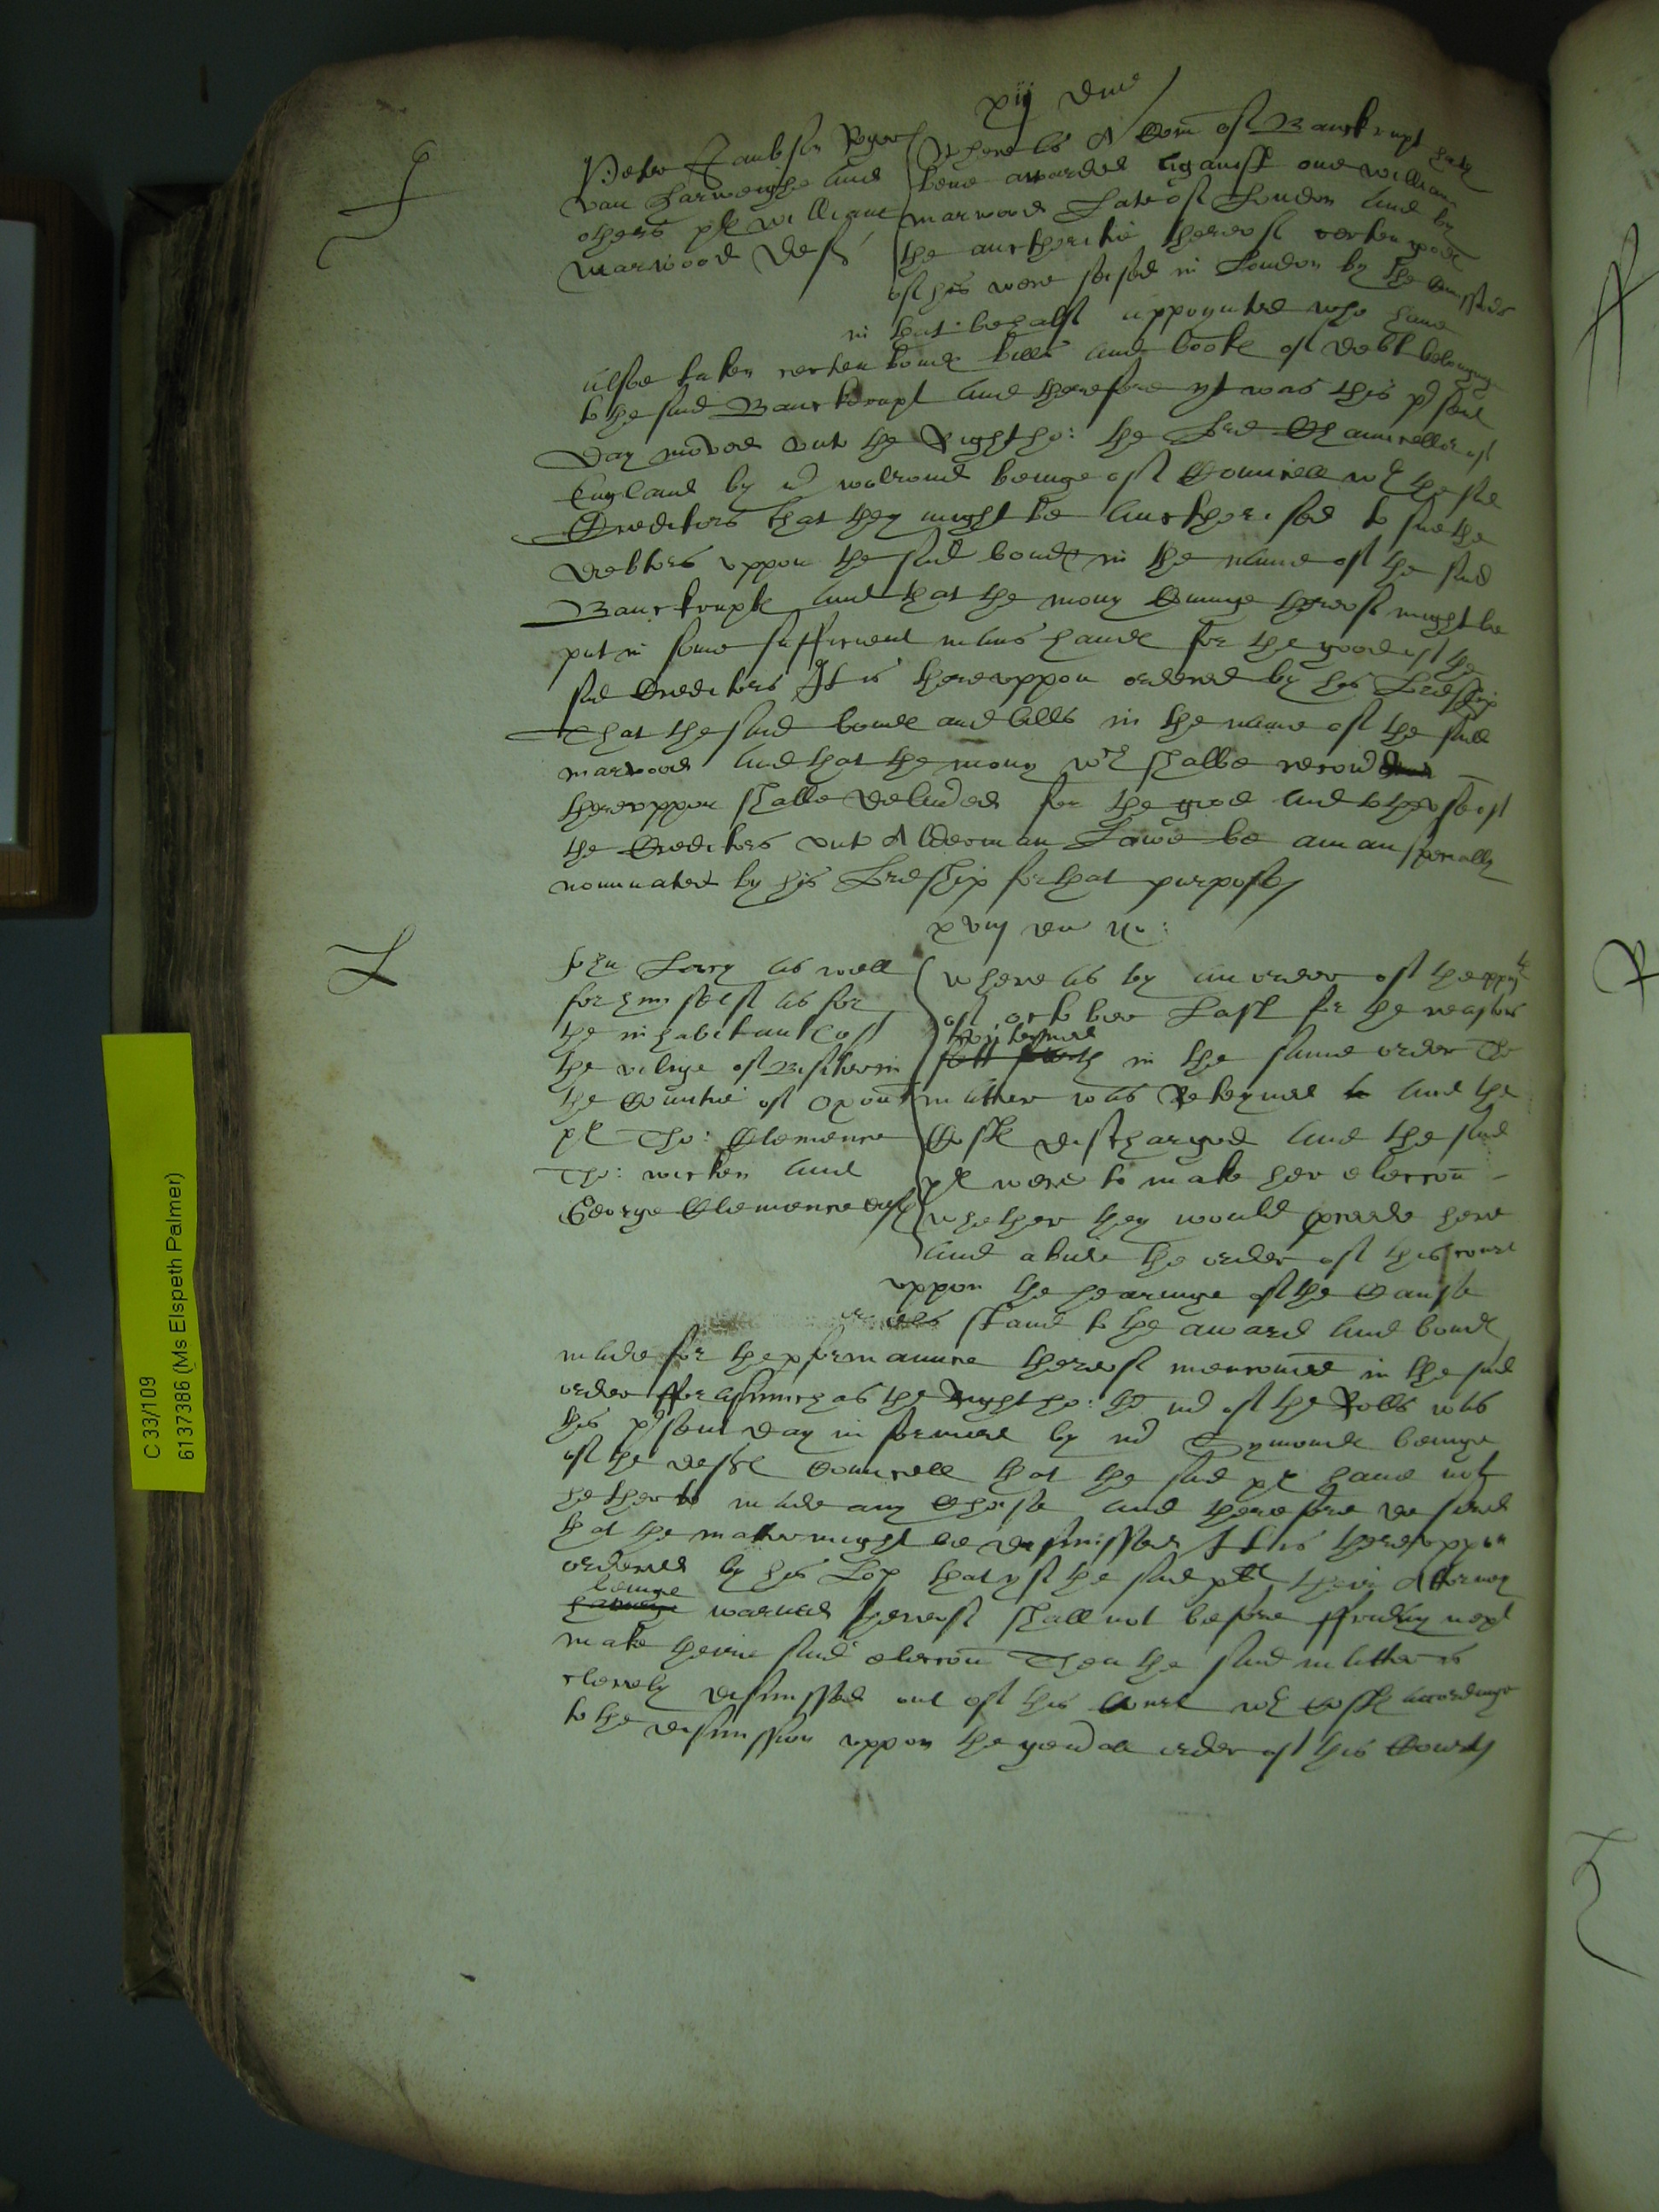 xij die
J
Peter Jacobson Roger
van Harweighe and
others pl William
Marwood deft
Whereas A Com of Banckrupt hath
bene awarded against one william
marwood Late of London and by
the aucthoritie thereof certen good
of his were seised in London by the
in that behalf appoynted who have
alsoe taken certen bond bills and booke of debt belonging
to the said Banckerupt and therefore yt was this pnt
Day moved unto the Right ho: the Lord Chauncellor of
England by mr walrond beinge of Councell wth the sd
Creditors that they might be aucthorised to sue the
debtors uppon the said bonde in the name of the said
Banckrupt and that the mony Cominge thereof might be
put in some sufficient mans hande for the good of the
said Creditors It is thereuppon ordered by his Lordship
That the said bonde and bills in the name of the said
marwood and that the mony wch shalbe recoud
thereuppon shalbe delived for the good and to the use of
the Creditors unto Alderman Lowe be a man specially
nominated by his Lordship for that purpose
xviij die No:
L
John Lacy as well
for himself as for
the inhabitant of
the village of in
the Countie of Oxon
pl Tho: Clemence
Tho: wicken and
George Clemence deft
Whereas by an order of the
of october Last for the reasons
conteyned
sett forth in the same order The
matter was Reteyned and the
Cost discharged and the said
pl were to make her eleccon
whether they would procede here
and abide the order of this court
uppon the hearinge of the Cause
or els stand to the award and bond
made for the pformaunce thereof mencioned in the said
order fforasmuch as the Right ho: the mr of the Rolls was
this psent day informed by mr Symonde beinge
of the deft Councell that the said pl have not
hetherto made any Choise and therefore desired
that the matter might be dismissed It is thereuppon
ordered by his Lop that yf the said pl their Attorney
beinge
havinge warned thereof shall not before ffriday next
make their said eleccon Then the said matter is
clerely dismissed out of this Court wth Cost accordinge
to the dismission uppon the genall order of this Court
C 33/109
6137386 (Ms Elspeth Palmer)